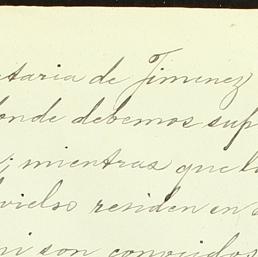 etaria de Jimenez
donde debemos sup
; mientras que l
vielso residen en
ni son conocidos